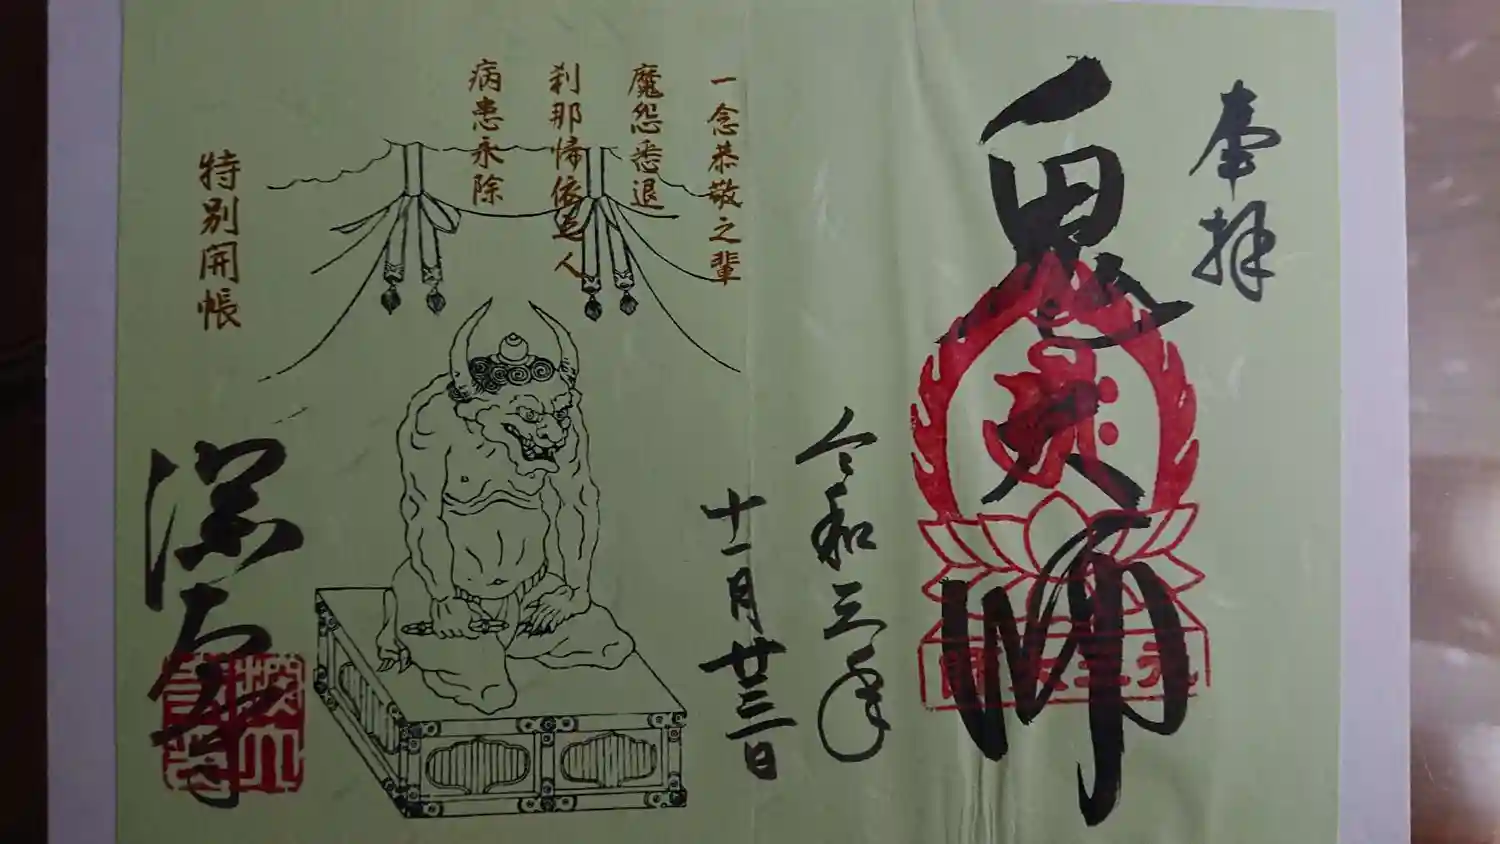 奉拝
鬼大師
令和三年
十一月廿三日
一念恭敬之輩
魔怨悉退
刹那帰依之人
病患永除
特別開帳
深大寺
元三大師